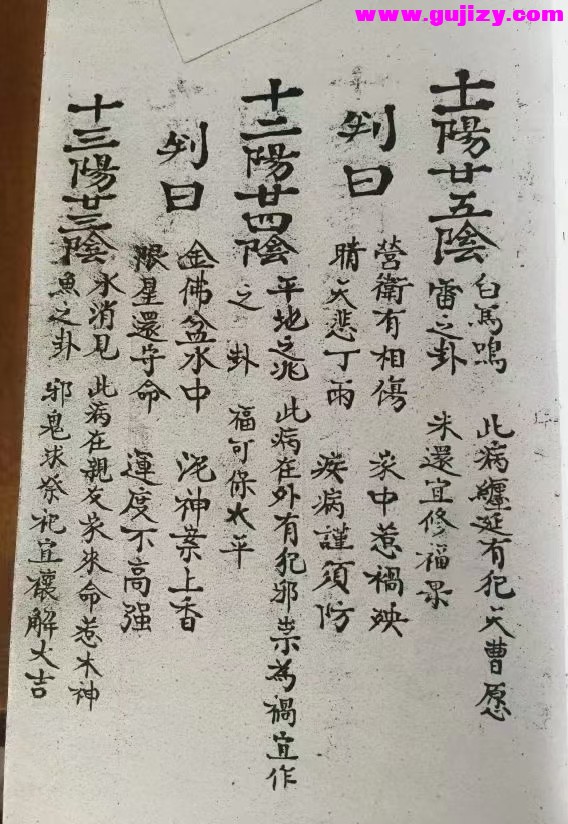 www.gujizy.com
十一陽廿五陰
白馬鳴 此病纏延有犯天曹愿
雷之卦 未還宜修福果
判曰
營衛有相傷 家中惹禍殃
晴天悲丁雨 疾病謹須防
十二陽廿四陰
平地之兆 此病在外有犯邪祟為禍宜作
之卦 福可保太平
判曰
金佛盆水中 泥神案上香
限星還守命 運度不高强
十三陽廿三陰
水消見 此病在親友家來命惹木神
魚之卦 邪鬼求祭祀宜禳解大吉